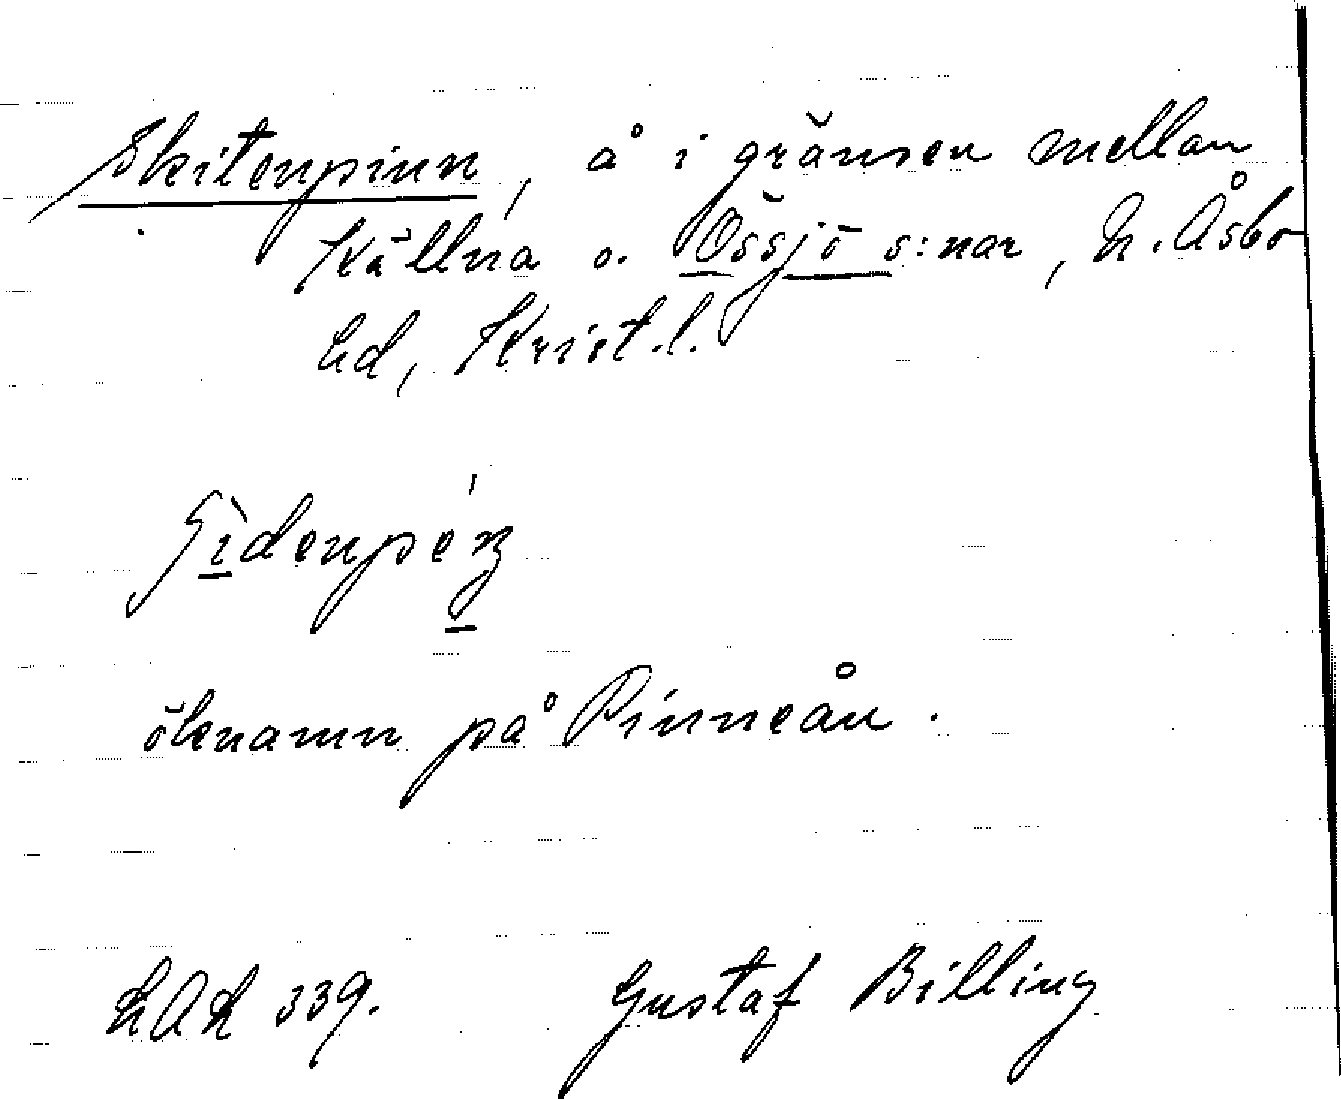 Skitenpinn, å i gränsen mellan
Källna o. Össjö s:nar, N. Åsbo
hd, Krist. l.
ʃìdenpén
öknamn på Pinneån.
LAL 339. Gustaf Billing